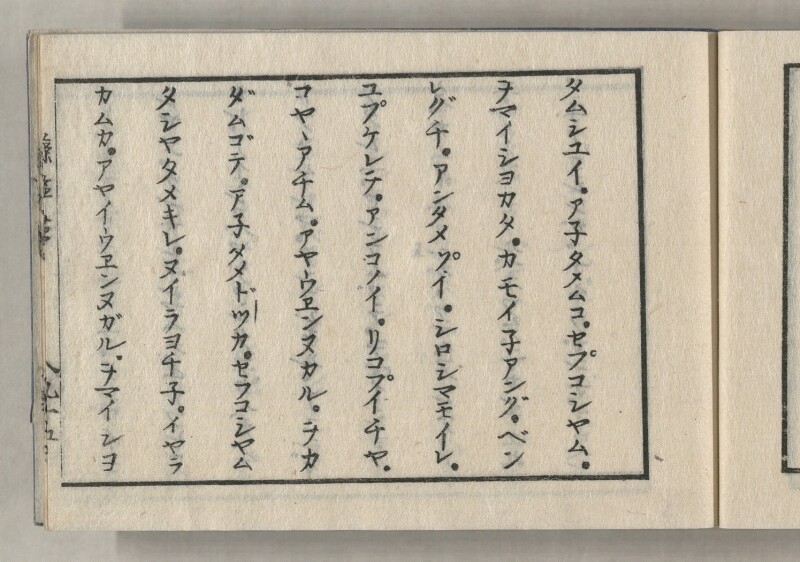 タムシユイ。ア子タメムコ。セプコシヤム。
ヲマイシヨカタ。カモイ子アング。ベン
レグチ。アンタメプイ。シロシマモイレ。
ユプケレテ。アンコノイ。リコプイチヤ。
コヤヽアチム。アヤウヱンヌカル。ヲカ
ダムゴテ。ア子メメドツカ。セフコシヤム
タシヤタメキレ。ヌイラヨチ子。イヤラ
カムカ。アヤイウヱンヌガル。ヲマイシヨ